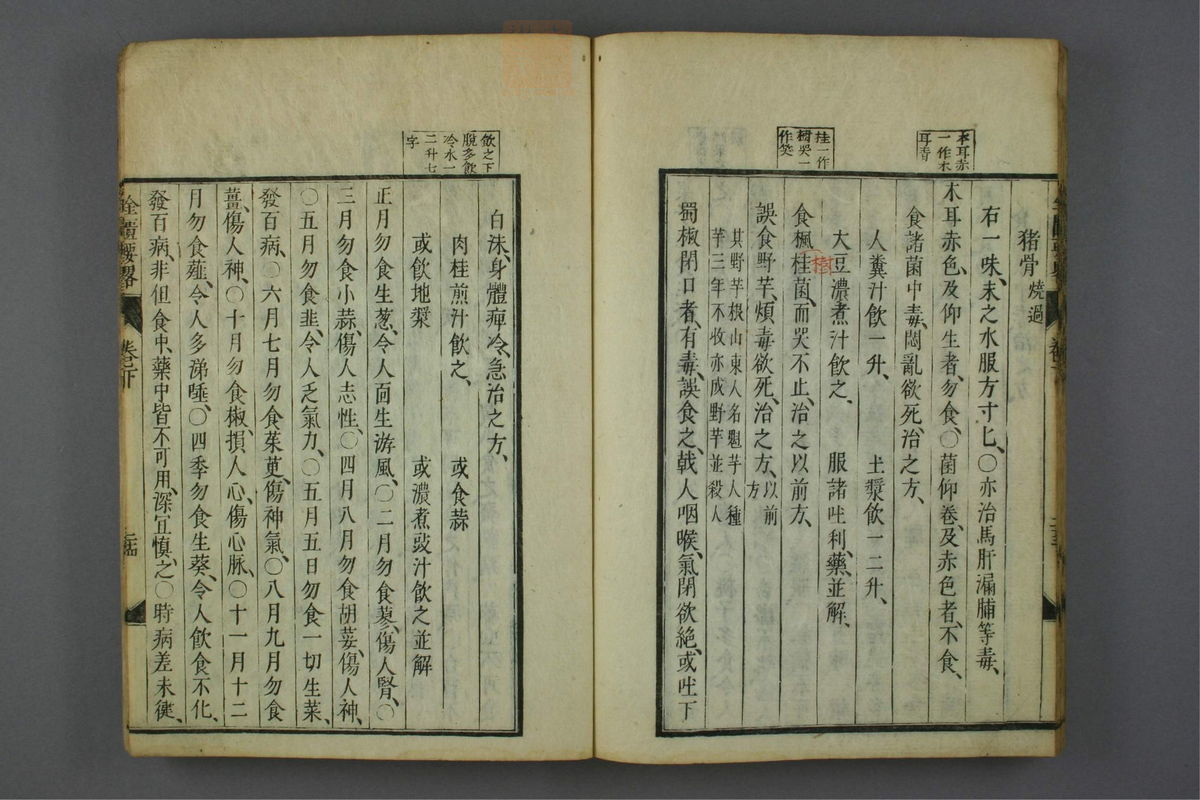 木耳赤
一作木
耳青
桂一作
樹哭一
作笑
猪骨燒過
右一味、末之水服方寸匕、〇亦治馬肝漏脯等毒、
木耳赤色、及仰生者、勿食、〇菌仰卷、及赤色者、不食、
食諸菌中毒、悶亂欲死、治之方、
人糞汁飲一升、 土漿飲一二升、
大豆濃煮汁飲之、 服諸吐利藥、並解、
食楓桂菌、而哭不止、治之以前方、
樹
誤食野芋、煩毒欲死、治之方、以前方
其野芋根山東人名魁芋人種
芋三年不收亦成野芋並殺人
蜀椒閉口者、有毒、誤食之、戟人咽喉、氣閉欲絕、或吐下
飲之下
脫多飲
冷水一
二升七
字
白沫、身體痺冷、急治之方、
肉桂煎汁飲之、 或食蒜
或飲地漿 或濃煮豉汁飲之並解
正月勿食生葱、令人面生游風、〇二月勿食蓼、傷人腎、〇
三月勿食小蒜、傷人志性、〇四月八月勿食胡荽、傷人神、
〇五月勿食韭、令人乏氣力、〇五月五日勿食一切生菜、
發百病、〇六月七月勿食茱萸、傷神氣、〇八月九月勿食
薑、傷人神、〇十月勿食椒、損人心、傷心脉、〇十一月十二
月勿食薤、令人多涕唾、〇四季勿食生葵、令人飲食不化、
發百病、非但食中、藥中皆不可用、深宜慎之、〇時病差未健、
金匱要畧 卷下 二十四